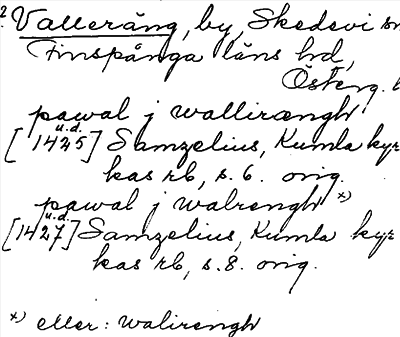 2 Valleräng, by, Skedevi sn
Finspånga läns hd,
Österg. l
pawal j wallirængh
[1425] u.d. Samzelius, Kumla kyr
kas rb, s. 6. orig.
pawal j walrengh x)
[1427] u.d. Samzelius, Kumla kyr
kas rb, s. 8. orig.
x) eller: walirengh